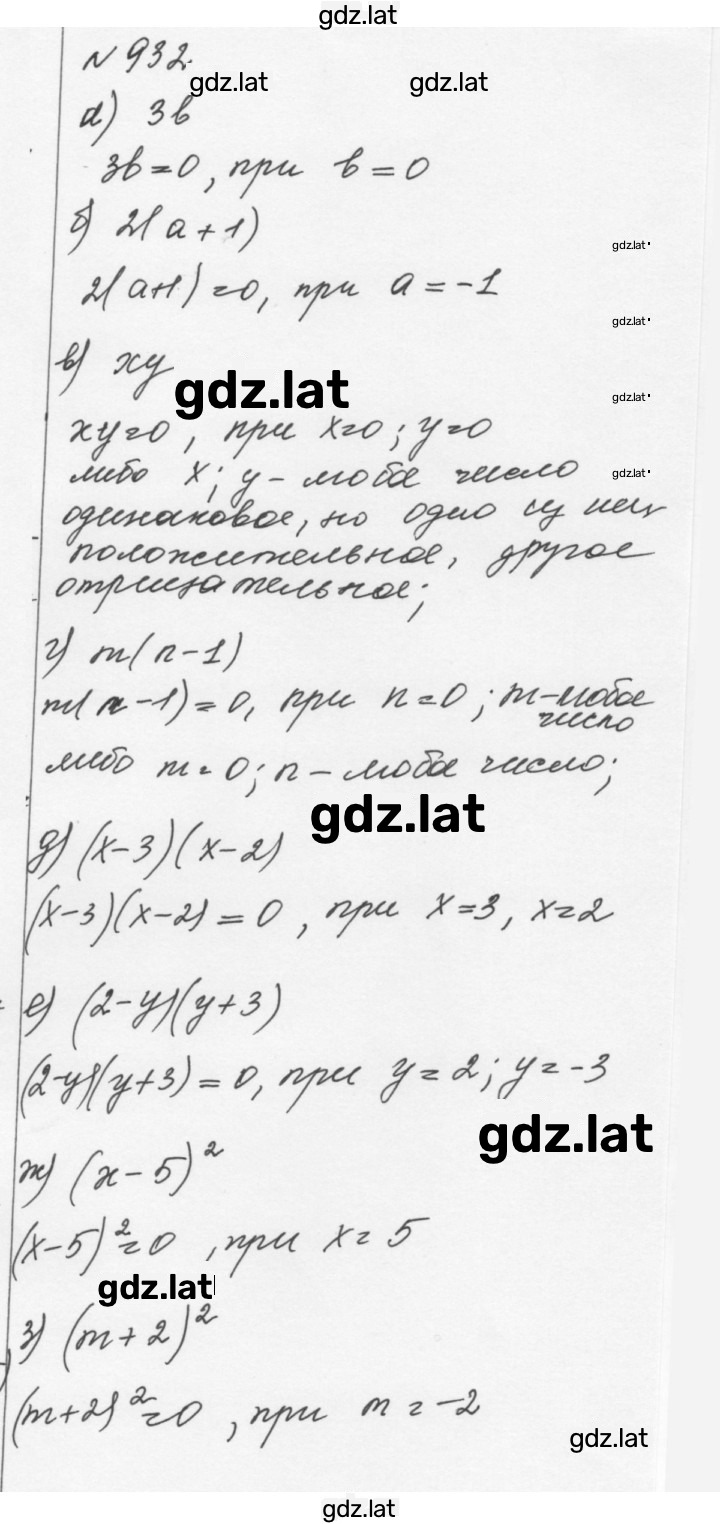 gdz.lat
№ 932
gdz.lat gdz.lat
а) 3b
3b=0, при b=0
б) 2(a+1)
gdz.lat
2(a+1)=0, при a=-1
gdz.lat
в) xy
gdz.lat
gdz.lat
xy=0, при x=0; y=0
либо x; y - любое число
gdz.lat
одинаковое, но одно из них
положительное, другое
отрицательное;
г) m(n-1)
m(n-1)=0, при n=0; m-любое
число
либо m=0; n-любое число;
gdz.lat
д) (x-3)(x-2)
(x-3)(x-2)=0, при x=3, x=2
е) (2-y)(y+3)
(2-y)(y+3)=0, при y=2; y=-3
gdz.lat
ж) (x-5)²
(x-5)²=0, при x=5
gdz.lat
з) (m+2)²
(m+2)²=0, при m=-2
gdz.lat
gdz.lat